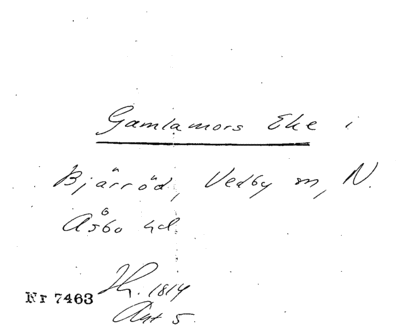 Gamlamors Eke i
Bjärröd, Vedby sn, N.
Åsbo hd.
Nr 7463 Th. 1814
Ant 5.